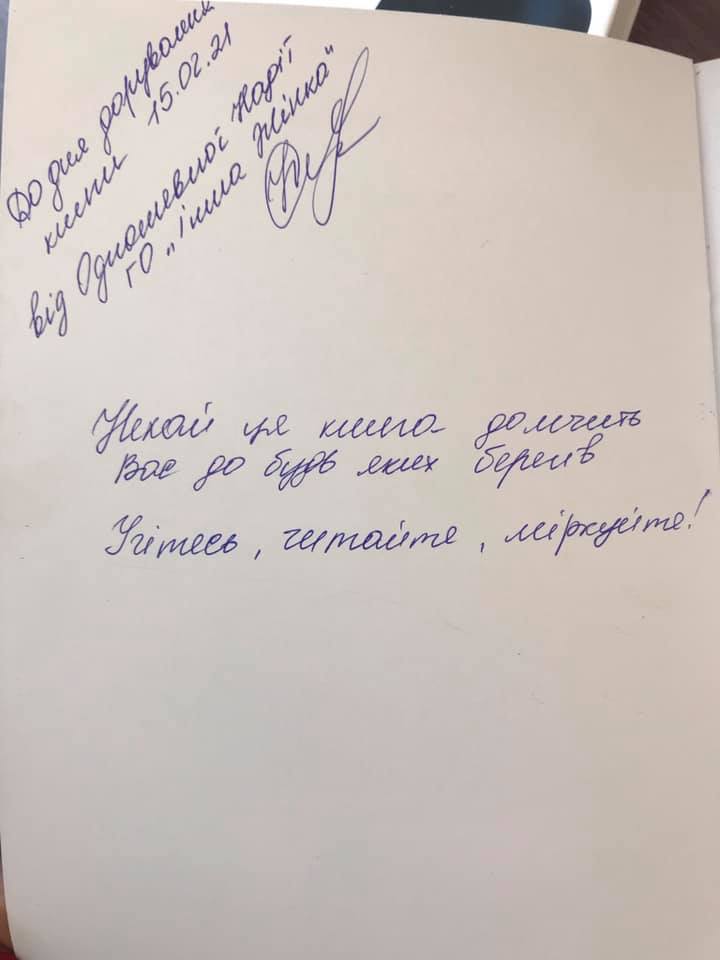 До дня дарування
книги 15.02.21
від Одношевної Надії
ГО „Інша Жінка"
Нехай ця книга домчить
Вас до будь яких берегів
Учітесь, читайте, міркуйте!